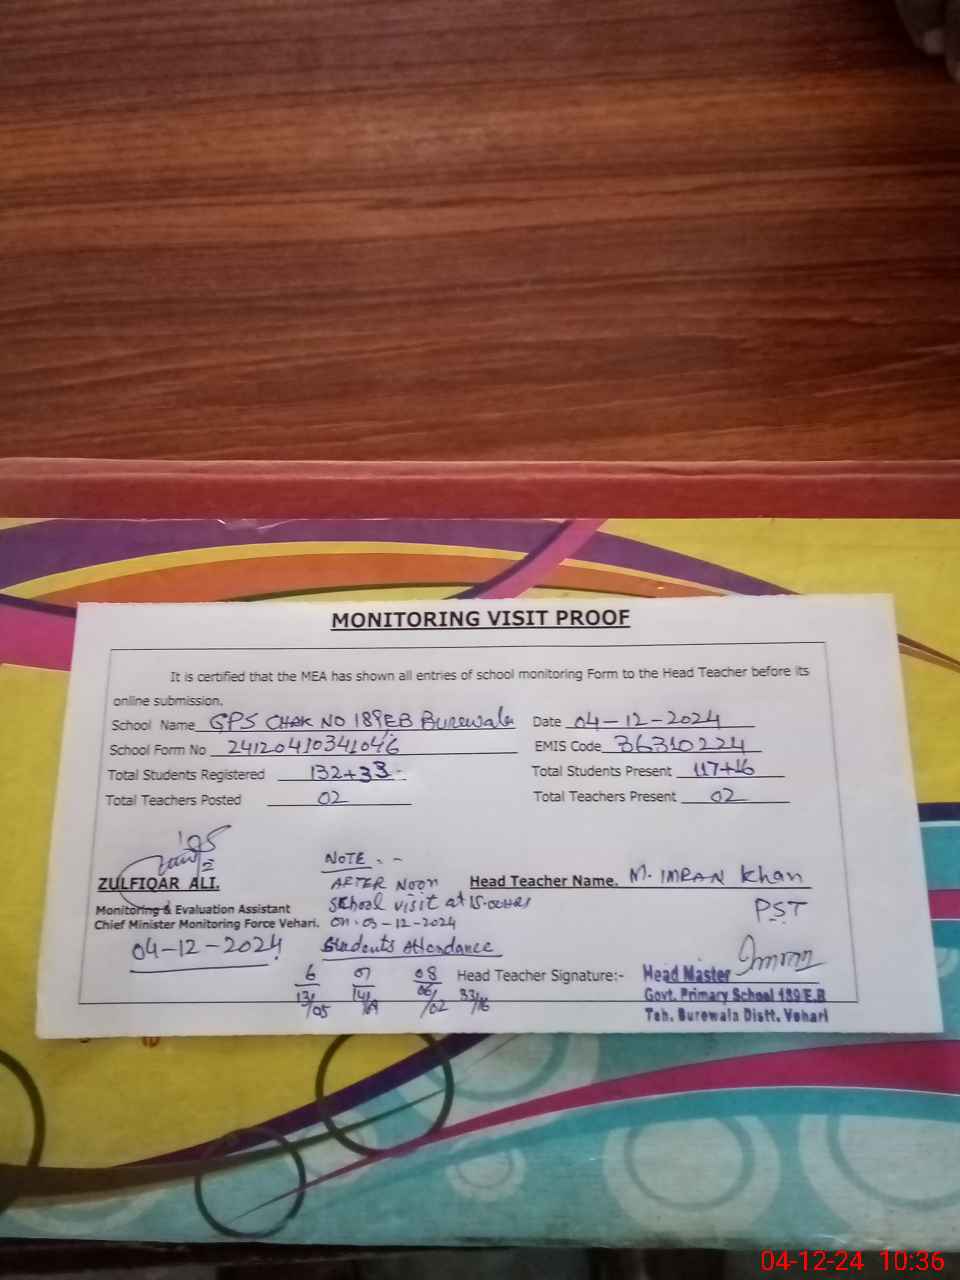 MONITORING VISIT PROOF
It is certified that the MEA has shown all entries of school monitoring Form to the Head Teacher before its
online submission.
School Name GPS CHAK NO 189EB Burewala Date 04-12-2024
School Form No 24120410341046 EMIS Code 36310224
Total Students Registered 132+33 Total Students Present 117+16
Total Teachers Posted 02 Total Teachers Present 02
NOTE :-
ZULFIQAR ALI. AFTER NOON Head Teacher Name. M. IMRAN Khan
Monitoring & Evaluation Assistant School visit at PST
Chief Minister Monitoring Force Vehari. on. 03-12-2024
04-12-2024 Students Attendance
6 07 08 Head Teacher Signature:- Head Master
13/05 14/09 06/02 33/16 Govt. Primary School 189/E.B
Teh. Burewala Distt. Vehari
04-12-24 10:36